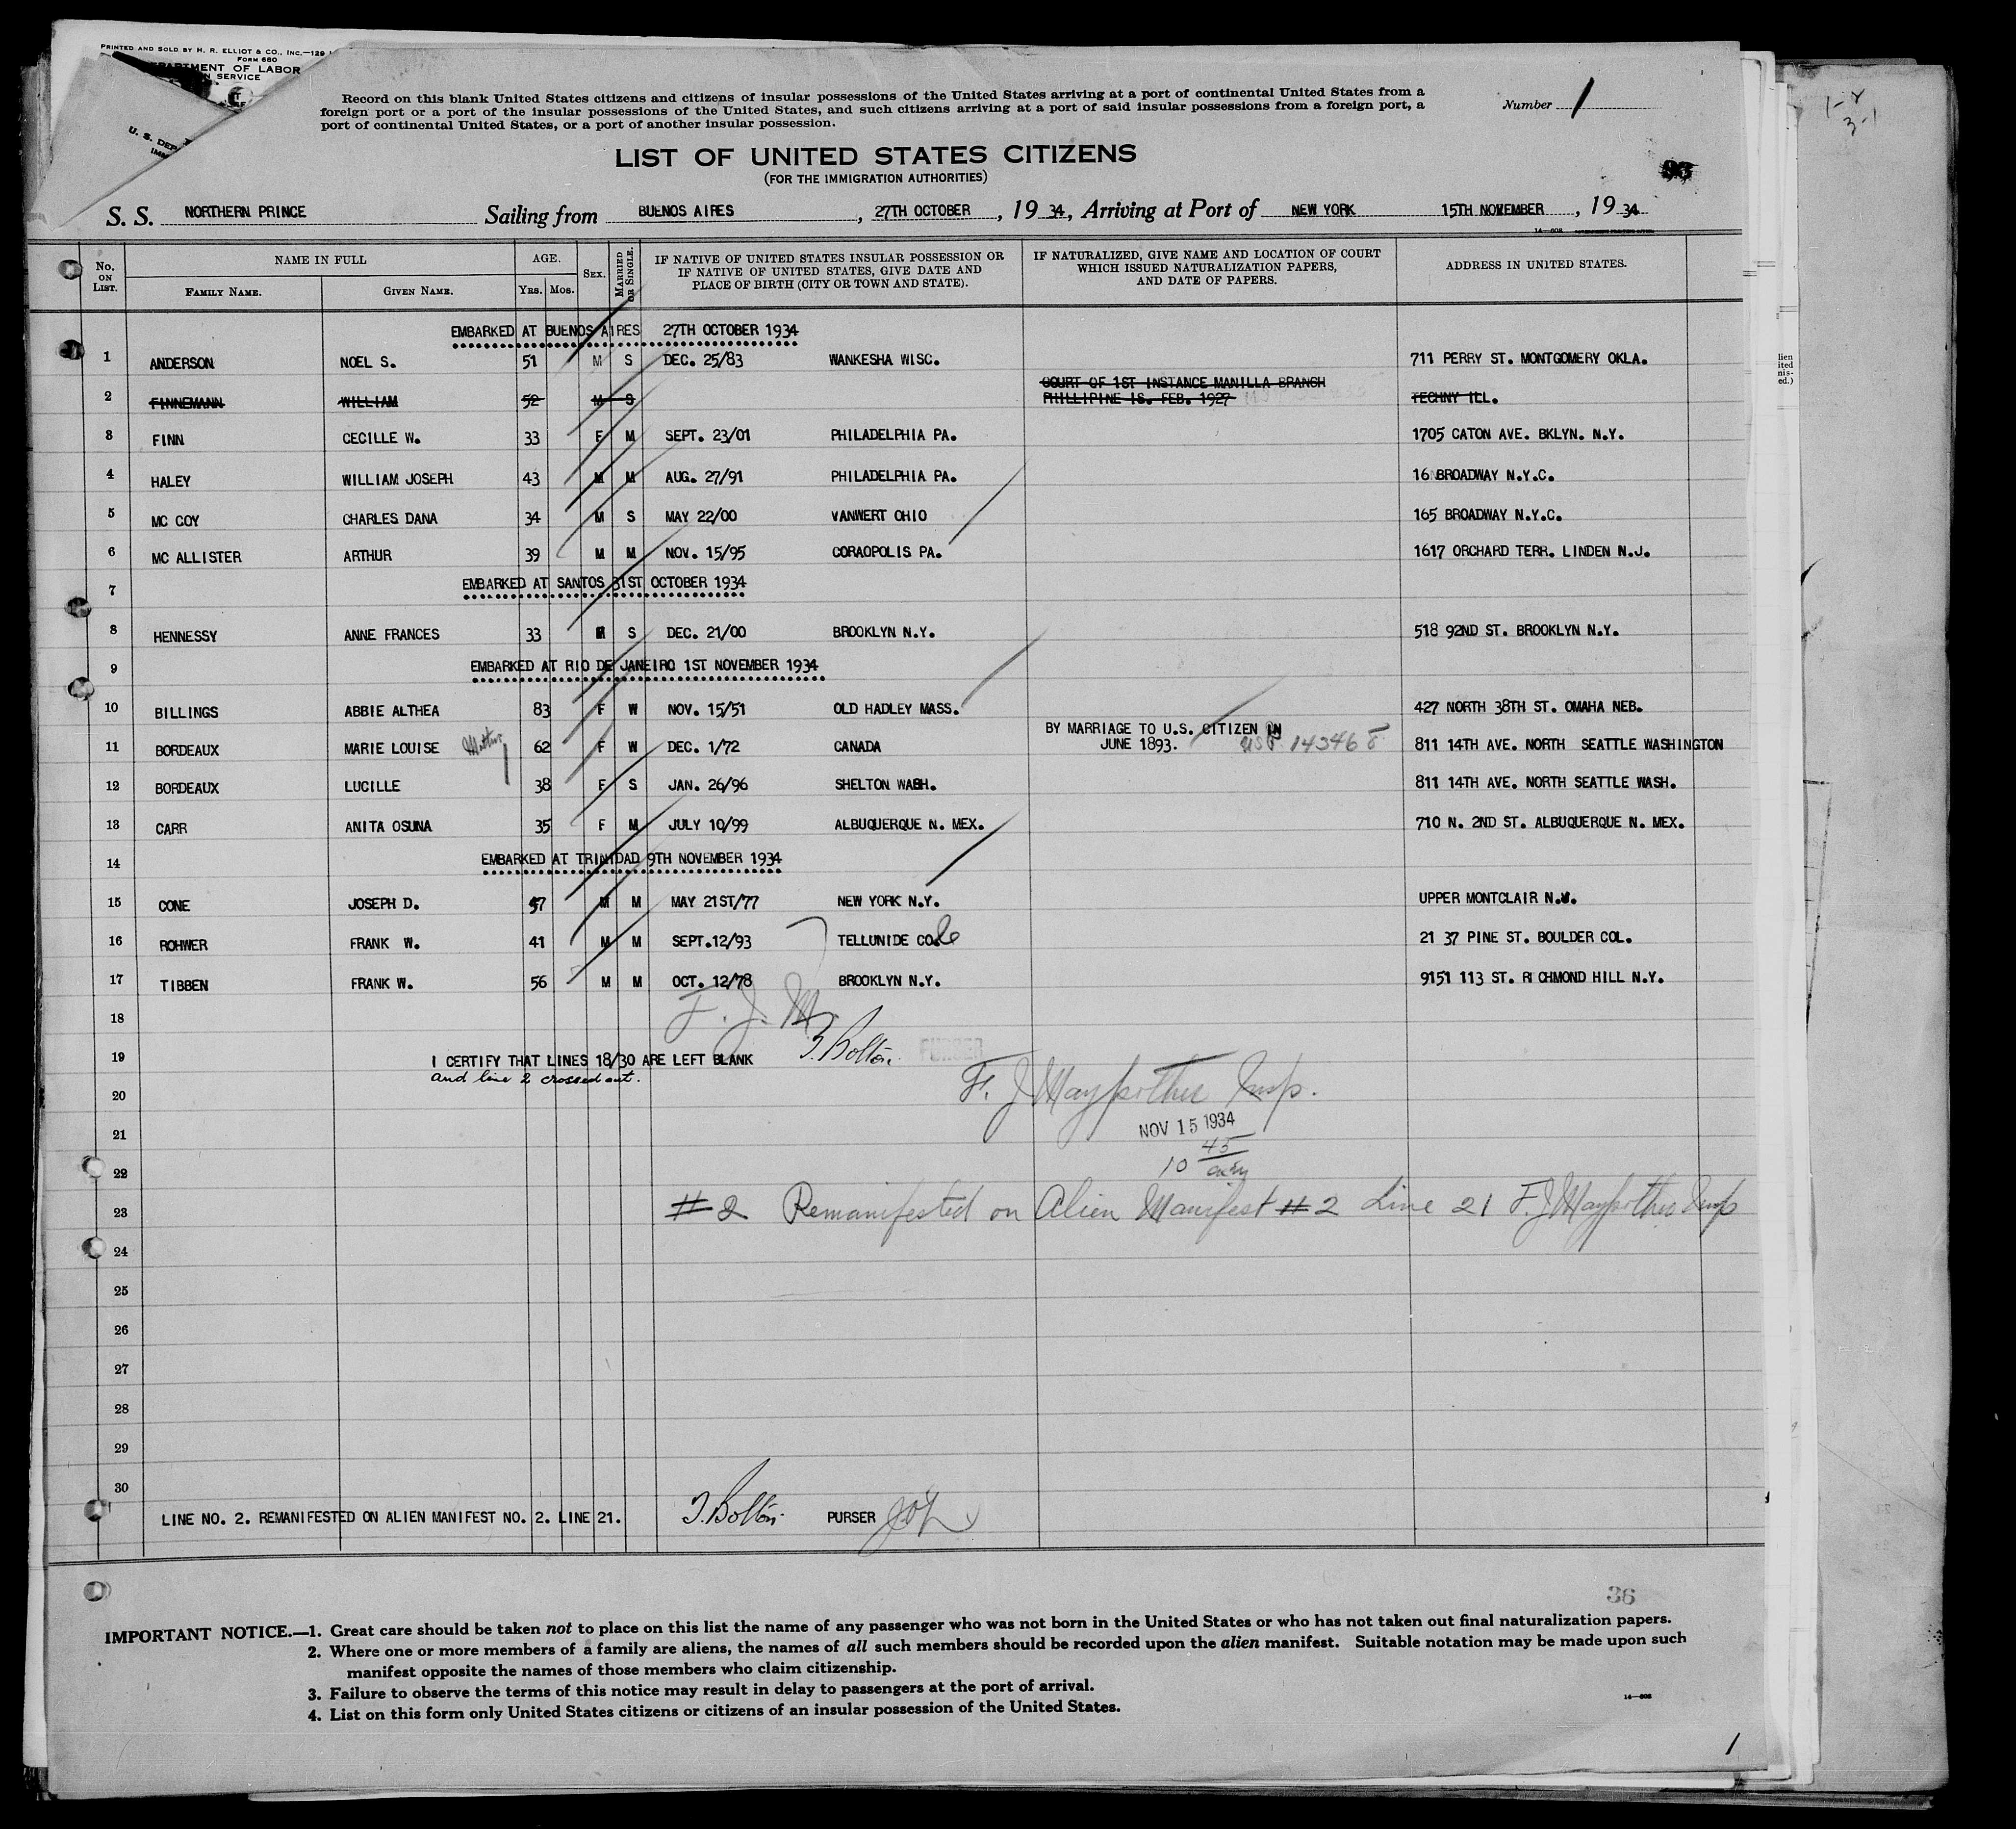 PRINTED AND SOLD BY H. R. ELLIOT & CO., INC.—129
FORM 680
DEPARTMENT OF LABOR
N SERVICE
U. S. DEP
IMM
Record on this blank United States citizens and citizens of insular possessions of the United States arriving at a port of continental United States from a
foreign port or a port of the insular possessions of the United States, and such citizens arriving at a port of said insular possessions from a foreign port, a
port of continental United States, or a port of another insular possession.
Number 1
LIST OF UNITED STATES CITIZENS
(FOR THE IMMIGRATION AUTHORITIES)
93
S. S. NORTHERN PRINCE Sailing from BUENOS AIRES, 27TH OCTOBER, 19 34, Arriving at Port of NEW YORK 15TH NOVEMBER, 19 34
No. ON LIST. NAME IN FULL FAMILY NAME. GIVEN NAME. AGE. YRS. MOS. SEX. MARRIED OR SINGLE. IF NATIVE OF UNITED STATES INSULAR POSSESSION OR IF NATIVE OF UNITED STATES, GIVE DATE AND PLACE OF BIRTH (CITY OR TOWN AND STATE). IF NATURALIZED, GIVE NAME AND LOCATION OF COURT WHICH ISSUED NATURALIZATION PAPERS, AND DATE OF PAPERS. ADDRESS IN UNITED STATES.
EMBARKED AT BUENOS AIRES 27TH OCTOBER 1934
1 ANDERSON NOEL S. 51 M S DEC. 25/83 WANKESHA WISC. 711 PERRY ST. MONTGOMERY OKLA.
2 FINNEMANN WILLIAM 52 M S COURT OF 1ST INSTANCE MANILLA BRANCH PHILLIPINE IS. FEB. 1927 TECHNY ILL.
3 FINN CECILLE W. 33 F M SEPT. 23/01 PHILADELPHIA PA. 1705 CATON AVE. BKLYN. N.Y.
4 HALEY WILLIAM JOSEPH 43 M M AUG. 27/91 PHILADELPHIA PA. 16 BROADWAY N.Y.C.
5 MC COY CHARLES DANA 34 M S MAY 22/00 VANWERT OHIO 165 BROADWAY N.Y.C.
6 MC ALLISTER ARTHUR 39 M M NOV. 15/95 CORAOPOLIS PA. 1617 ORCHARD TERR. LINDEN N.J.
7 EMBARKED AT SANTOS 31ST OCTOBER 1934
8 HENNESSY ANNE FRANCES 33 S DEC. 21/00 BROOKLYN N.Y. 518 92ND ST. BROOKLYN N.Y.
9 EMBARKED AT RIO DE JANEIRO 1ST NOVEMBER 1934
10 BILLINGS ABBIE ALTHEA 83 F W NOV. 15/51 OLD HADLEY MASS. 427 NORTH 38TH ST. OMAHA NEB.
11 BORDEAUX MARIE LOUISE Mother 62 F W DEC. 1/72 CANADA BY MARRIAGE TO U.S. CITIZEN IN JUNE 1893. 811 14TH AVE. NORTH SEATTLE WASHINGTON
12 BORDEAUX LUCILLE 38 F S JAN. 26/96 SHELTON WASH. 811 14TH AVE. NORTH SEATTLE WASH.
13 CARR ANITA OSUNA 35 F M JULY 10/99 ALBUQUERQUE N. MEX. 710 N. 2ND ST. ALBUQUERQUE N. MEX.
14 EMBARKED AT TRINIDAD 9TH NOVEMBER 1934
15 CONE JOSEPH D. 57 M M MAY 21ST/77 NEW YORK N.Y. UPPER MONTCLAIR N.J.
16 ROHWER FRANK W. 41 M M SEPT.12/93 TELLUNIDE COL 21 37 PINE ST. BOULDER COL.
17 TIBBEN FRANK W. 56 M M OCT. 12/78 BROOKLYN N.Y. 9151 113 ST. RICHMOND HILL N.Y.
18 F. J. M
19 I CERTIFY THAT LINES 18/30 ARE LEFT BLANK J. Bolton. PURSER
and line 2 crossed out.
20 F. J. Mayforther Insp.
21 NOV 15 1934
22 10 45
23 #2 Remanifested on Alien Manifest #2 Line 21 F. J. Mayforther Insp
24
25
26
27
28
29
30
LINE NO. 2. REMANIFESTED ON ALIEN MANIFEST NO. 2. LINE 21. J. Bolton. PURSER
36
IMPORTANT NOTICE.—1. Great care should be taken not to place on this list the name of any passenger who was not born in the United States or who has not taken out final naturalization papers.
2. Where one or more members of a family are aliens, the names of all such members should be recorded upon the alien manifest. Suitable notation may be made upon such
manifest opposite the names of those members who claim citizenship.
3. Failure to observe the terms of this notice may result in delay to passengers at the port of arrival.
4. List on this form only United States citizens or citizens of an insular possession of the United States.
14—608
1